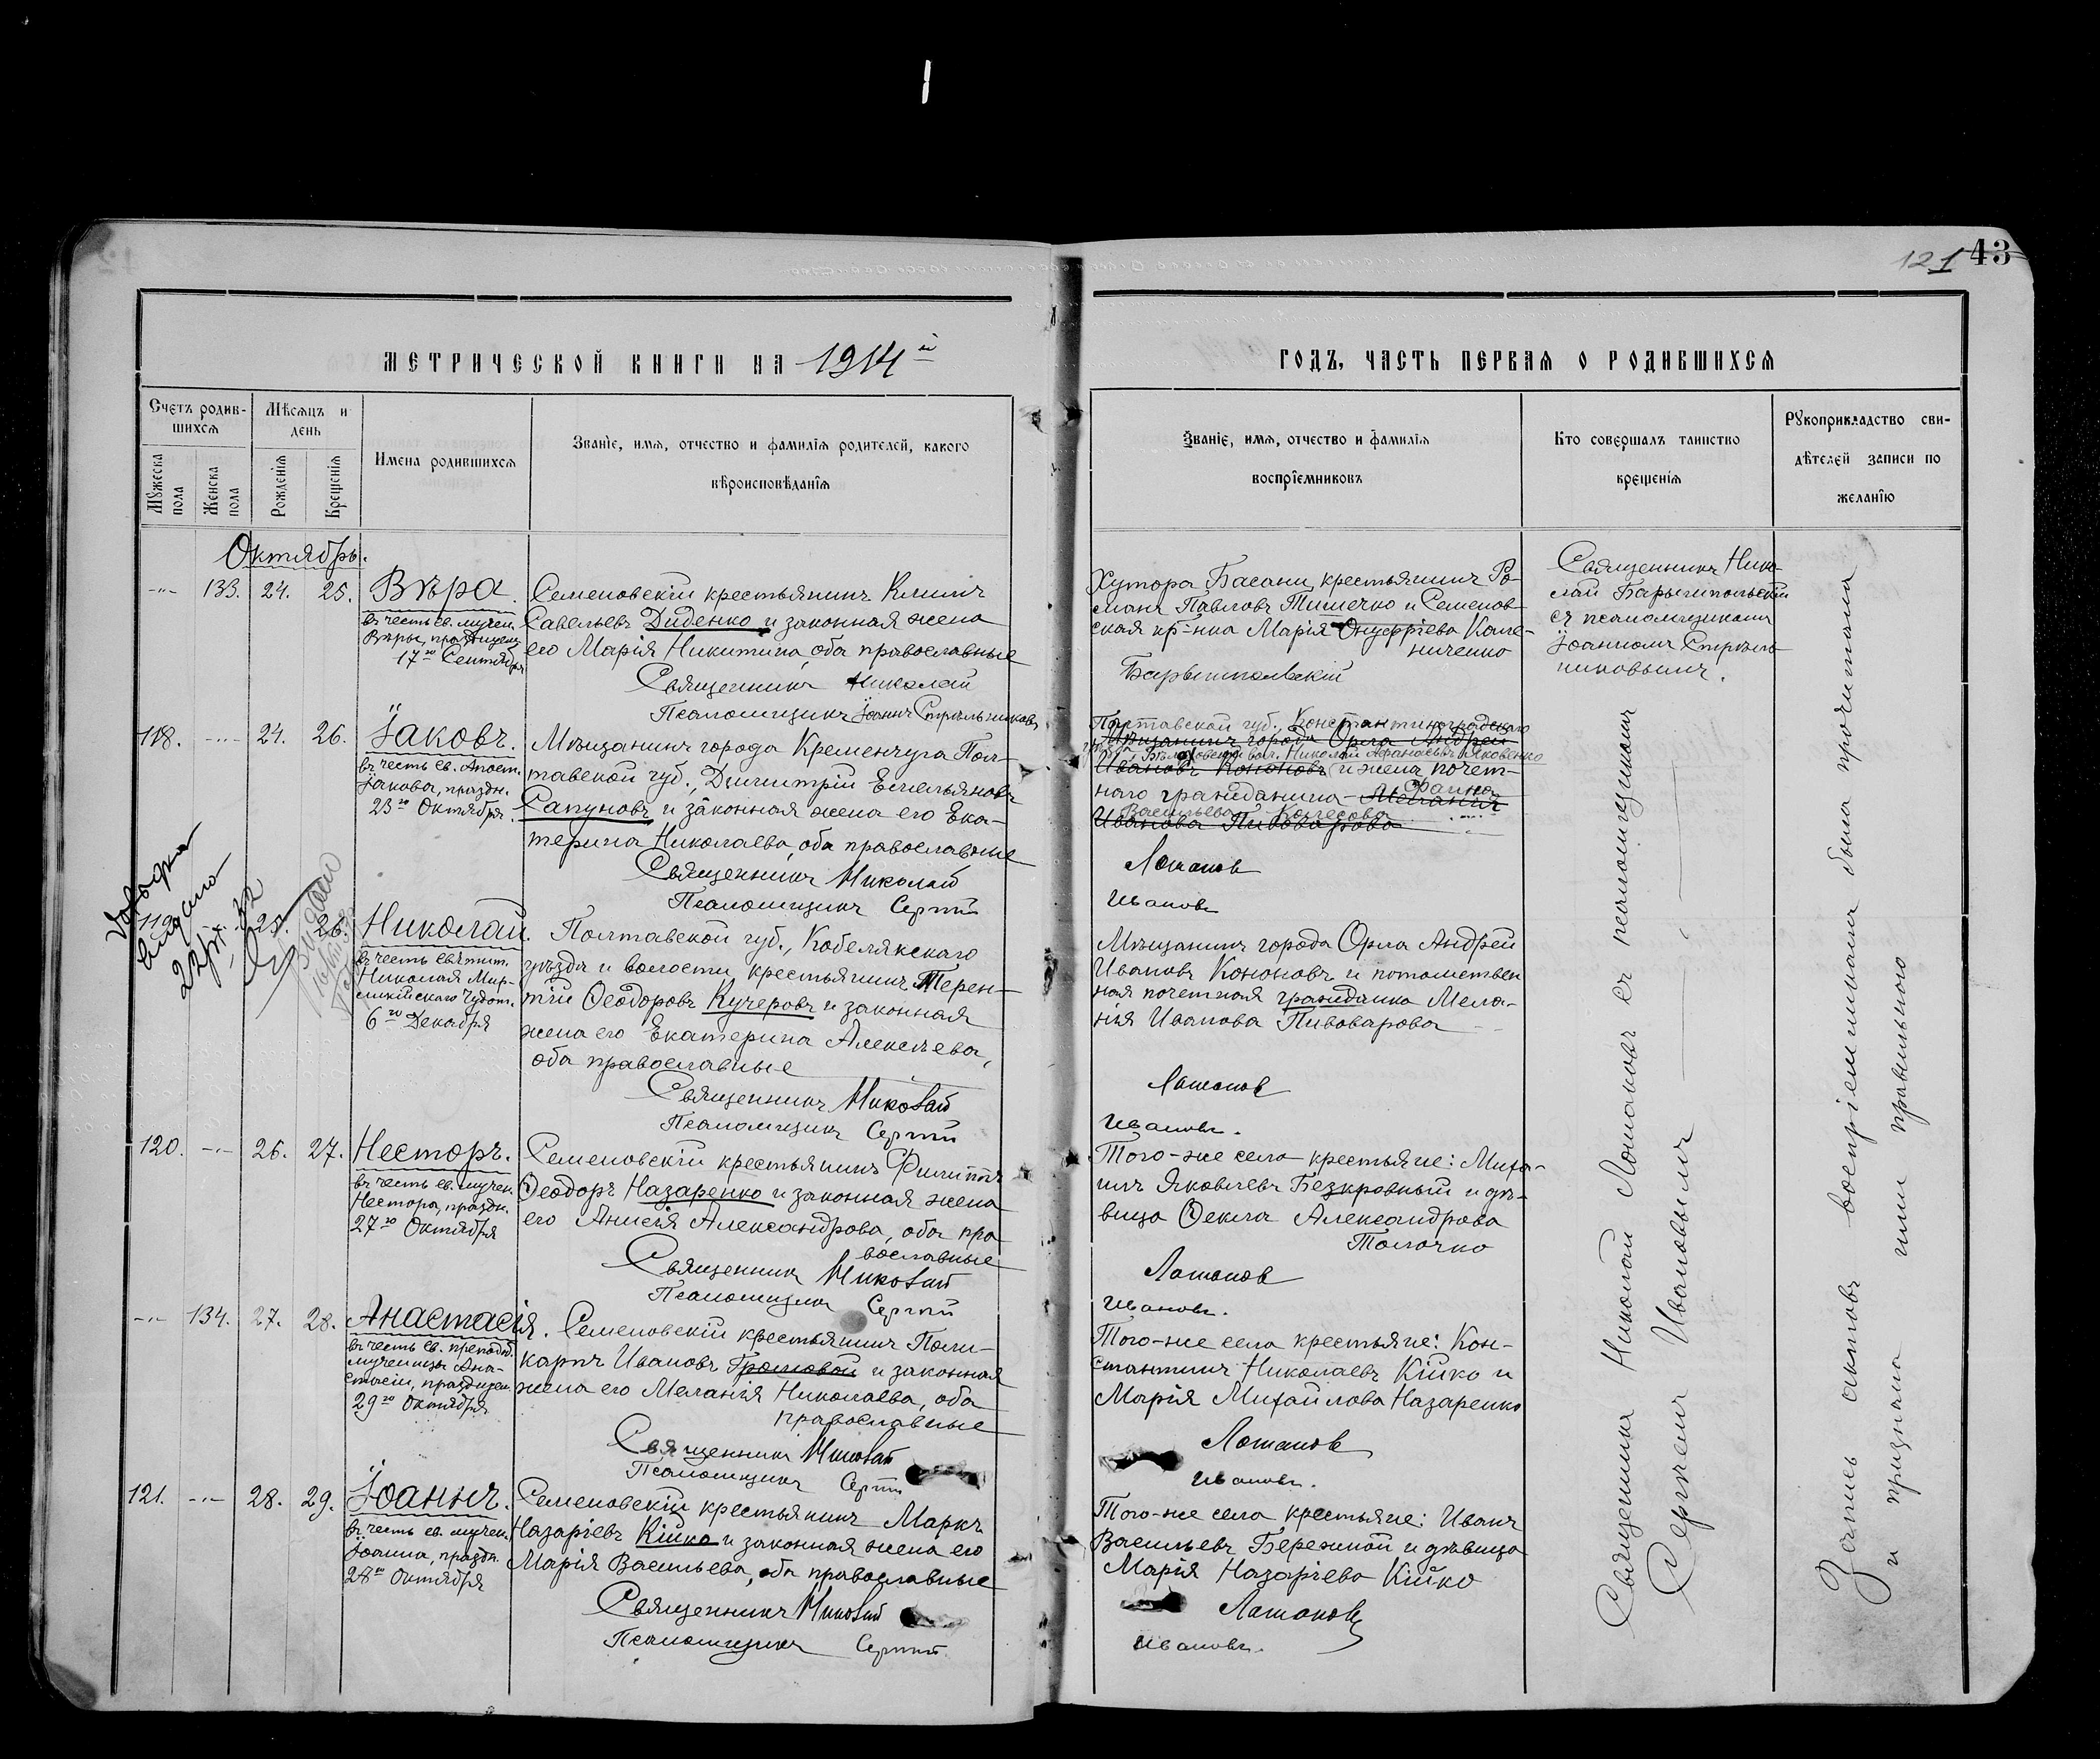 121 43
МЕТРИЧЕСКОЙ КНИГИ НА 1914й
ГОДЪ, ЧАСТЬ ПЕРВАЯ О РОДИВШИХСЯ
Счетъ родив-
шихся
Мужеска пола
Женска пола
Мѣсяцъ и
день
Рожденія
Крещенія
Имена родившихся
Званіе, имя, отчество и фамилія родителей, какого
вѣроисповѣданія
Званіе, имя, отчество и фамилія
воспріемниковъ
Кто совершалъ таинство
крещенія
Рукоприкладство сви-
дѣтелей записи по
желанію
Октябрь.
-"- 133. 24. 25.
Вѣра.
въ честь св. мучен.
Вѣры, празднуем.
17го Сентября
Семеновскій крестьянинъ Климъ
Савельевъ Диденко и законная жена
его Марія Никитина, оба православные
Священникъ Николай
Псаломщикъ Іоаннъ Стрѣльниковъ
Хутора Басани, крестьянинъ Ро-
манъ Павловъ Тимечко и Семенов-
ская кр-нка Марія Онуфріева Кале-
ниченко
Барышпольскій
Священникъ Нико-
лай Барышпольскій
съ псаломщикомъ
Іоанномъ Стрѣль-
никовымъ.
118. -"- 24. 26.
Іаковъ.
въ честь св. Апост.
Іакова, праздн.
23го Октября.
Мѣщанинъ города Кременчуга Пол-
тавской губ., Димитрій Емельяновъ
Сапуновъ и законная жена его Ека-
терина Николаева, оба православные
Священникъ Николай
Псаломщикъ Сергій
Полтавской губ., Константиноградскаго
Мѣщанинъ города Орла Андрей
вол. Николай Афанасьевъ Яковенко
Ивановъ Кононовъ и жена почет-
наго гражданина Фаина
Меланія
Васильева Колесова
Иванова Пивоварова
Лошаковъ
Ивановъ
выдана
22/
119. 25. 26.
Николай.
въ честь святит.
Николая Мир-
ликійскаго Чудот.
6го Декабря
Полтавской губ., Кобелякскаго
уѣзда и волости, крестьянинъ Терен-
тій Ѳеодоровъ Кучеровъ и законная
жена его Екатерина Алексѣева,
оба православные
Священникъ Николай
Псаломщикъ Сергій
Мѣщанинъ города Орла Андрей
Ивановъ Кононовъ и потомствен
ная почетная гражданка Мела-
нія Иванова Пивоварова
Лошаковъ
Ивановъ.
120. -"- 26. 27.
Несторъ.
въ честь св. мучен.
Нестора, праздн.
27го Октября
Семеновскій крестьянинъ Филиппъ
Ѳеодоръ Назаренко и законная жена
его Анисія Александрова, оба пра
вославные
Священникъ Николай
Псаломщикъ Сергій
Того-же села крестьяне: Миха-
илъ Яковлевъ Безкровный и дѣ-
вица Ѳекла Александрова
Толочко
Лошаковъ
Ивановъ.
-"- 134. 27. 28.
Анастасія.
въ честь св. преподоб.
мученицы Ана-
стасіи, празднуем.
29го Октября
Семеновскій крестьянинъ Поли-
карпъ Ивановъ Громовой и законная
жена его Меланія Николаева, оба
православные
Священникъ Николай
Псаломщикъ Сергій
Того-же села крестьяне: Кон-
стантинъ Николаевъ Кійко и
Марія Михайлова Назаренко
Лошаковъ
Ивановъ.
121. -"- 28. 29.
Іоаннъ.
въ честь св. мучен.
Іоанна, праздн.
28го Октября
Семеновскій крестьянинъ Маркъ
Назаріевъ Кійко и законная жена его
Марія Васильева, оба православные
Священникъ Николай
Псаломщикъ Сергій
Того-же села крестьяне: Иванъ
Васильевъ Бережной и дѣвица
Марія Назаріева Кійко
Лошаковъ
Ивановъ.
Священникъ Николай Лошаковъ съ псаломщикомъ
Сергіемъ Ивановымъ
Запись актовъ воспріемниками была прочитана
и признана ими правильною